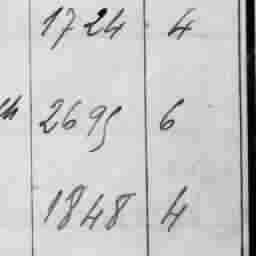 1724 4
2695 6
1848 4